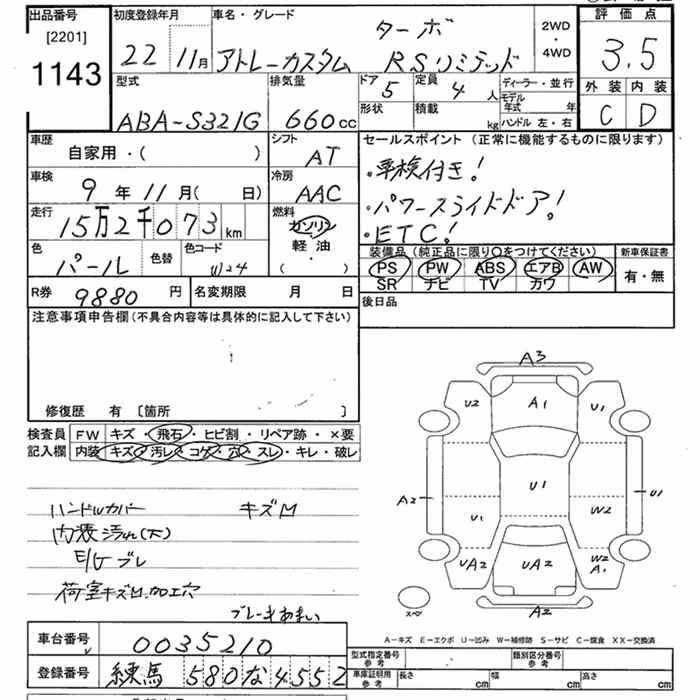 出品番号 初度登録年月 車名・グレード 2WD・4WD 評価点
[2201]
1143 22 11月 アトレーカスタム ターボ RSリミテッド 3.5
型式 排気量 ドア 定員 ディーラー・並行 外装 内装
ABA-S321G 660cc 5 4人 モデル年式 年 C D
形状 積載 kg ハンドル 左・右
車歴 シフト セールスポイント(正常に機能するものに限ります)
自家用・( ) AT
・車検付き!
車検 冷房
9年11月( 日) AAC
・パワースライドドア!
走行 燃料
15万2千073km ガソリン
・ETC!
軽油
・( )
色 色替 色コード
パール W24
装備品(純正品に限り○をつけてください) 新車保証書
PS PW ABS エアB AW 有・無
SR ナビ TV カワ
R券 9880円 名変期限 月 日 後日品
注意事項申告欄(不具合内容等は具体的に記入して下さい)
修復歴 有 [箇所 ]
検査員 FW キズ・飛石・ヒビ割・リペア跡・×要
記入欄 内装 キズ・汚レ・コゲ・穴・スレ・キレ・破レ
A3
U2 A1 U1
A2 U1 U1
U1 W2
UA2 UA2 W2 A1
スペア A2
ハンドルカバー キズM
内装汚れ(大)
E/Gブレ
荷室キズM.加工穴
ブレーキあまい
A-キズ E-エクボ U-凹み W-補修跡 S-サビ C-腐食 XX-交換済
車台番号 0035210
型式指定番号 参考 類別区分番号 参考
登録番号 練馬 580 な 4552
車庫証明用 参考 長さ cm 幅 cm 高さ cm